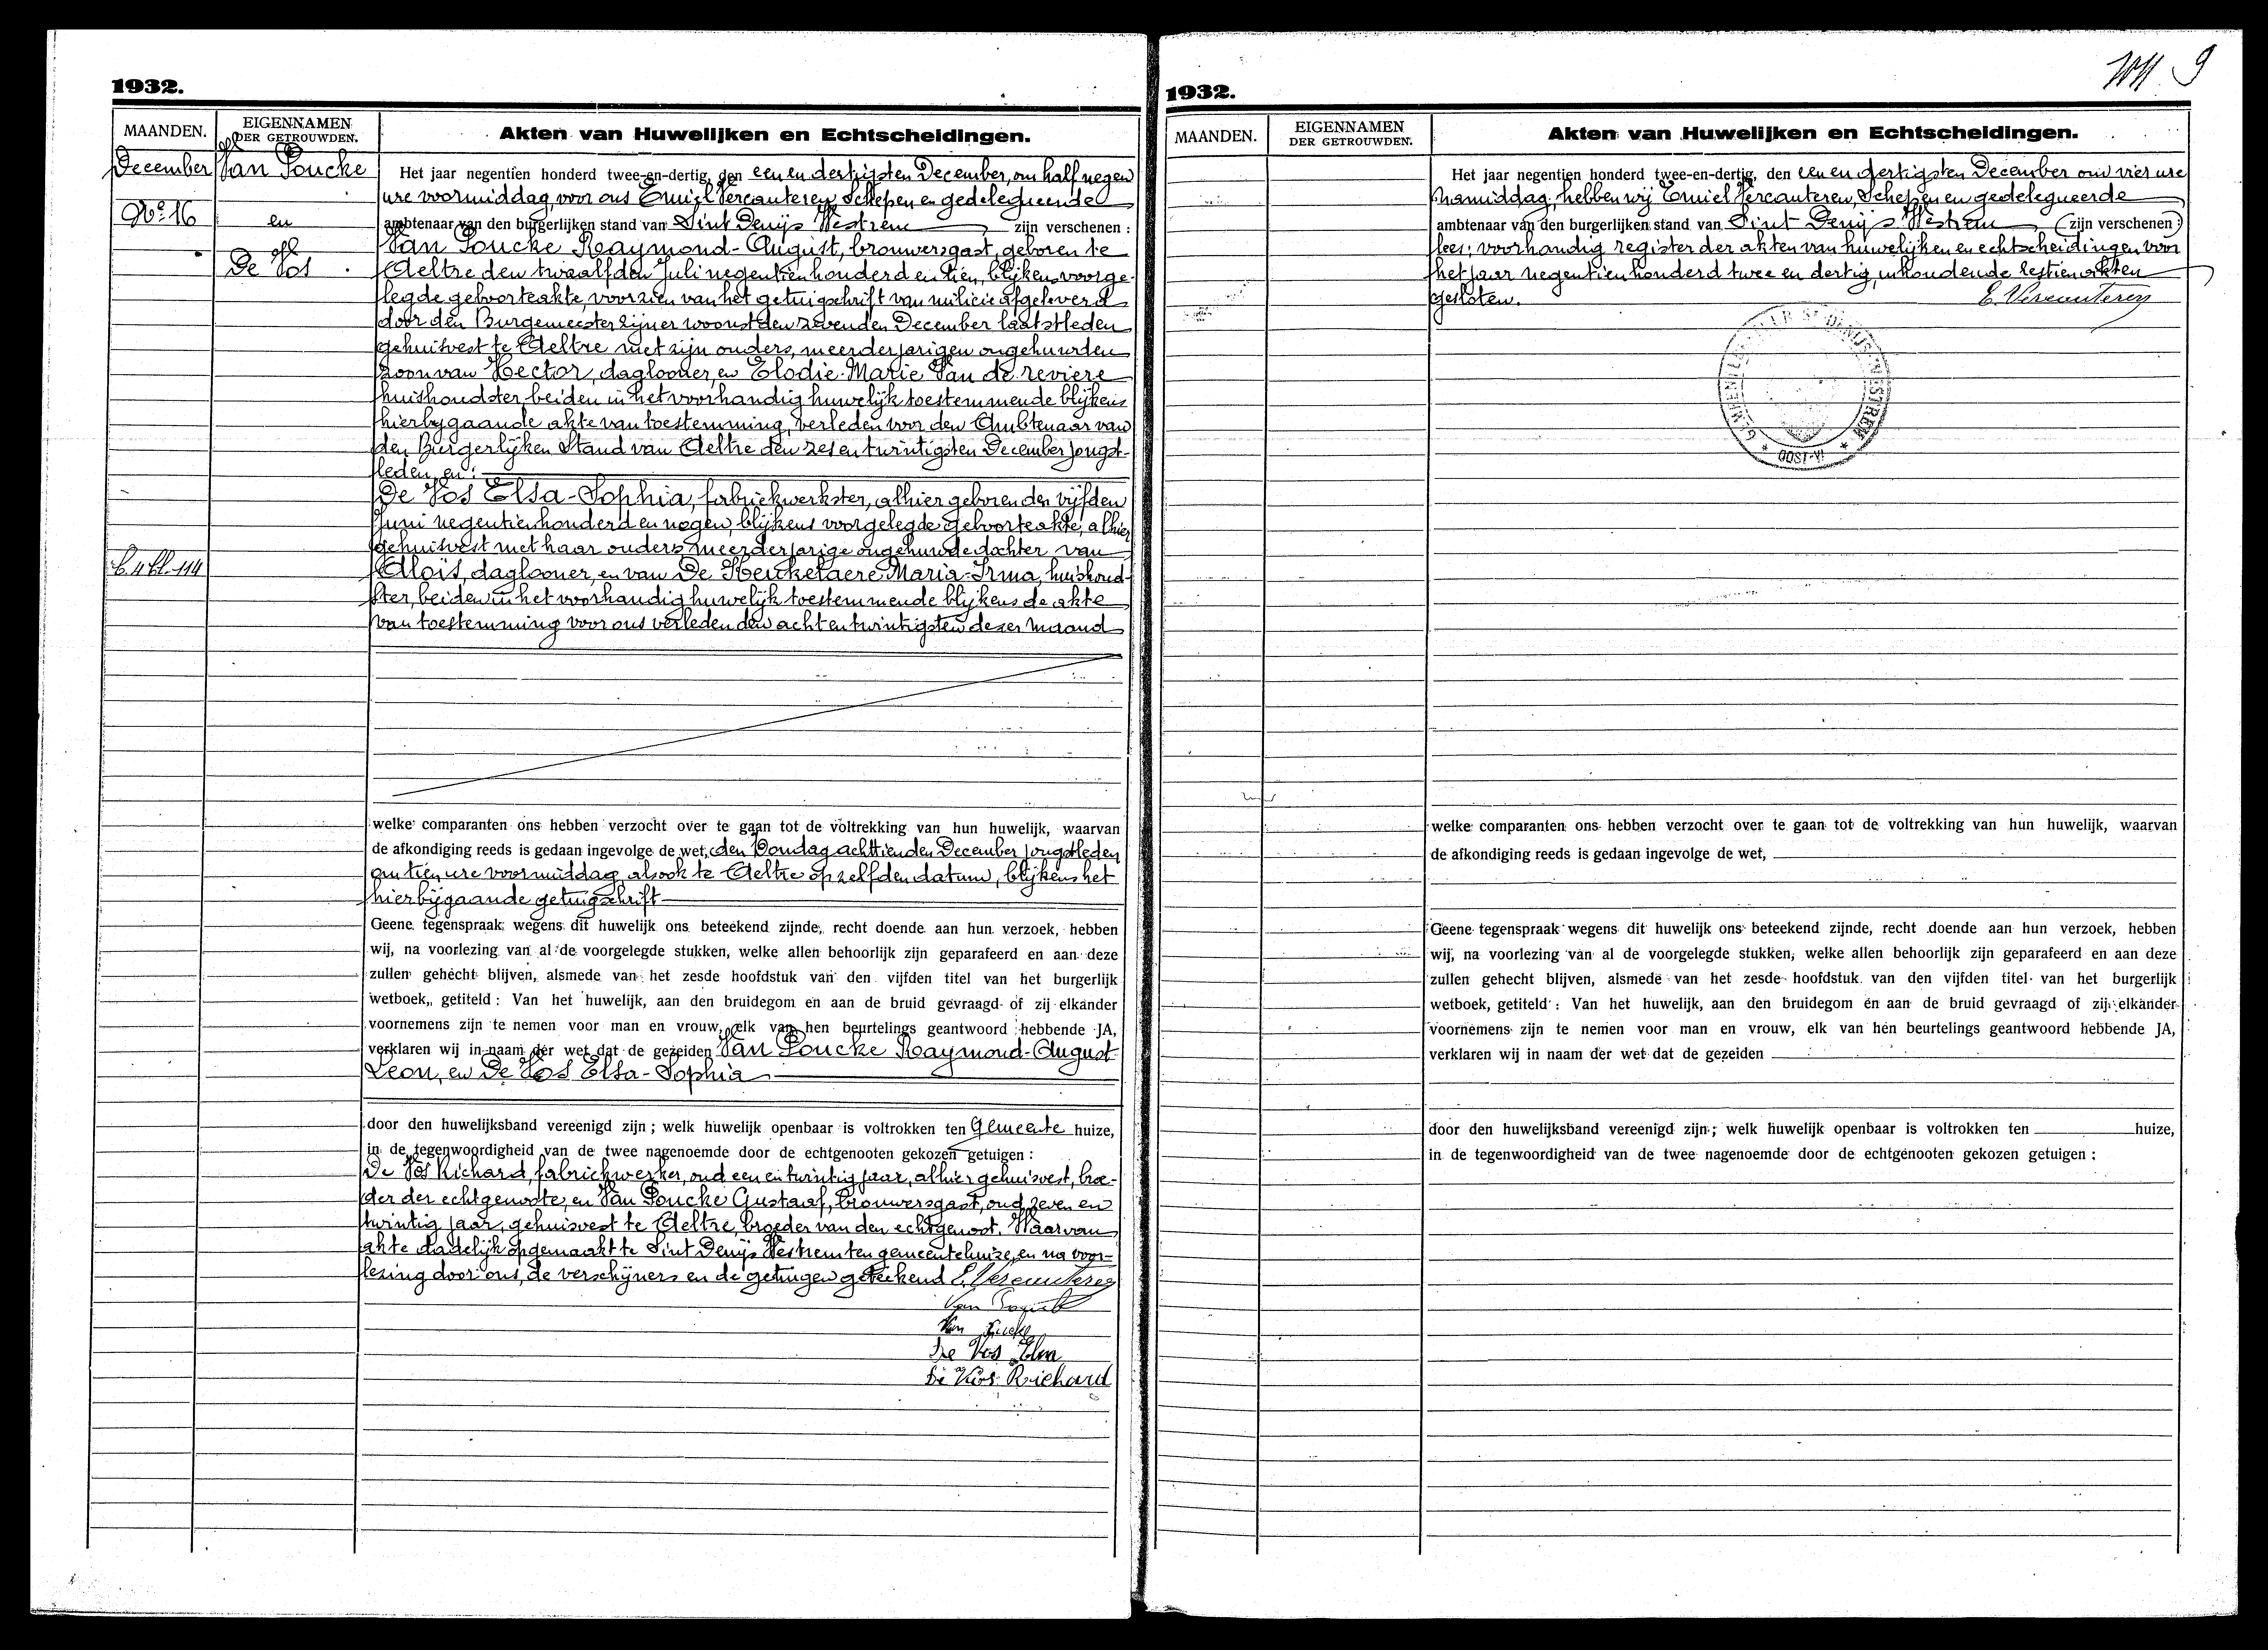 1932.
MAANDEN.
EIGENNAMEN
DER GETROUWDEN.
Akten van Huwelijken en Echtscheidingen.
December
Van Poucke
Nr. 16
en
De Vos
Het jaar negentien honderd twee-en-dertig, den een en dertigsten December, om half negen
ure voormiddag, voor ons Emiel Vercauteren Schepen en gedelegueerde
ambtenaar van den burgerlijken stand van Sint Denijs Westrem zijn verschenen :
Van Poucke Raymond-August, brouwersgast, geboren te
Aeltre den twaalfden Juli negentien honderd en tien, blijkens voorge-
legde geboorteakte, voorzien van het getuigschrift van milicie afgeleverd
door den Burgemeester zijner woonst den zevenden December laatstleden
gehuisvest te Aeltre met zijn ouders, meerderjarigen ongehuwden
zoon van Hector, daglooner, en Elodie-Marie Van de reviere
huishoudster, beiden in het voorhandig huwelijk toestemmende blijkens
hierbijgaande akte van toestemming, verleden voor den Ambtenaar van
den Burgerlijken Stand van Aeltre den zes en twintigsten December jongst-
leden, en :
De Vos Elsa-Sophia, fabriekwerkster, alhier geboren den vijfden
Juni negentienhonderd en negen, blijkens voorgelegde geboorteakte, alhier
gehuisvest met haar ouders, meerderjarige ongehuwde dochter van
Alois, daglooner, en van De Keukelaere Maria-Irma, huishoud-
ster, beiden in het voorhandig huwelijk toestemmende blijkens de akte
van toestemming voor ons verleden den acht en twintigsten dezer maand
114
welke comparanten ons hebben verzocht over te gaan tot de voltrekking van hun huwelijk, waarvan
de afkondiging reeds is gedaan ingevolge de wet, den Zondag achttienden December jongstleden
om tien ure voormiddag, alsook te Aeltre op zelfden datum, blijkens het
hierbijgaande getuigschrift
Geene tegenspraak wegens dit huwelijk ons beteekend zijnde, recht doende aan hun verzoek, hebben
wij, na voorlezing van al de voorgelegde stukken, welke allen behoorlijk zijn geparafeerd en aan deze
zullen gehecht blijven, alsmede van het zesde hoofdstuk van den vijfden titel van het burgerlijk
wetboek, getiteld : Van het huwelijk, aan den bruidegom en aan de bruid gevraagd of zij elkander
voornemens zijn te nemen voor man en vrouw, elk van hen beurtelings geantwoord hebbende JA,
verklaren wij in naam der wet dat de gezeiden Van Poucke Raymond-August
Leon, en De Vos Elsa-Sophia
door den huwelijksband vereenigd zijn ; welk huwelijk openbaar is voltrokken ten Gemeente huize,
in de tegenwoordigheid van de twee nagenoemde door de echtgenooten gekozen getuigen :
De Vos Richard, fabriekwerker, oud een en twintig jaar, alhier gehuisvest, broe-
der der echtgenoote, en Van Poucke Gustaaf, brouwersgast, oud zeven en
twintig jaar, gehuisvest te Aeltre, broeder van den echtgenoot. Waarvan
akte dadelijk opgemaakt te Sint Denijs Westrem ten gemeentehuize, en na voor-
lezing door ons, de verschijners en de getuigen geteekend E. Vercauteren
Van Poucke
Van Poucke
De Vos Elsa
De Vos Richard
9
1932.
MAANDEN.
EIGENNAMEN
DER GETROUWDEN.
Akten van Huwelijken en Echtscheidingen.
Het jaar negentien honderd twee-en-dertig, den een en dertigsten December om vier ure
namiddag, hebben wij Emiel Vercauteren, Schepen en gedelegueerde
ambtenaar van den burgerlijken stand van Sint Denijs Westrem (zijn verschenen :)
lees : voorhandig register der akten van huwelijken en echtscheidingen voor
het jaar negentien honderd twee en dertig, inhoudende zestien akten
gesloten. E. Vercauteren
GEMEENTEBESTUUR ST DENIJS-WESTREM * OOST-VL *
welke comparanten ons hebben verzocht over te gaan tot de voltrekking van hun huwelijk, waarvan
de afkondiging reeds is gedaan ingevolge de wet,
Geene tegenspraak wegens dit huwelijk ons beteekend zijnde, recht doende aan hun verzoek, hebben
wij, na voorlezing van al de voorgelegde stukken, welke allen behoorlijk zijn geparafeerd en aan deze
zullen gehecht blijven, alsmede van het zesde hoofdstuk van den vijfden titel van het burgerlijk
wetboek, getiteld : Van het huwelijk, aan den bruidegom en aan de bruid gevraagd of zij elkander
voornemens zijn te nemen voor man en vrouw, elk van hen beurtelings geantwoord hebbende JA,
verklaren wij in naam der wet dat de gezeiden
door den huwelijksband vereenigd zijn ; welk huwelijk openbaar is voltrokken ten huize,
in de tegenwoordigheid van de twee nagenoemde door de echtgenooten gekozen getuigen :